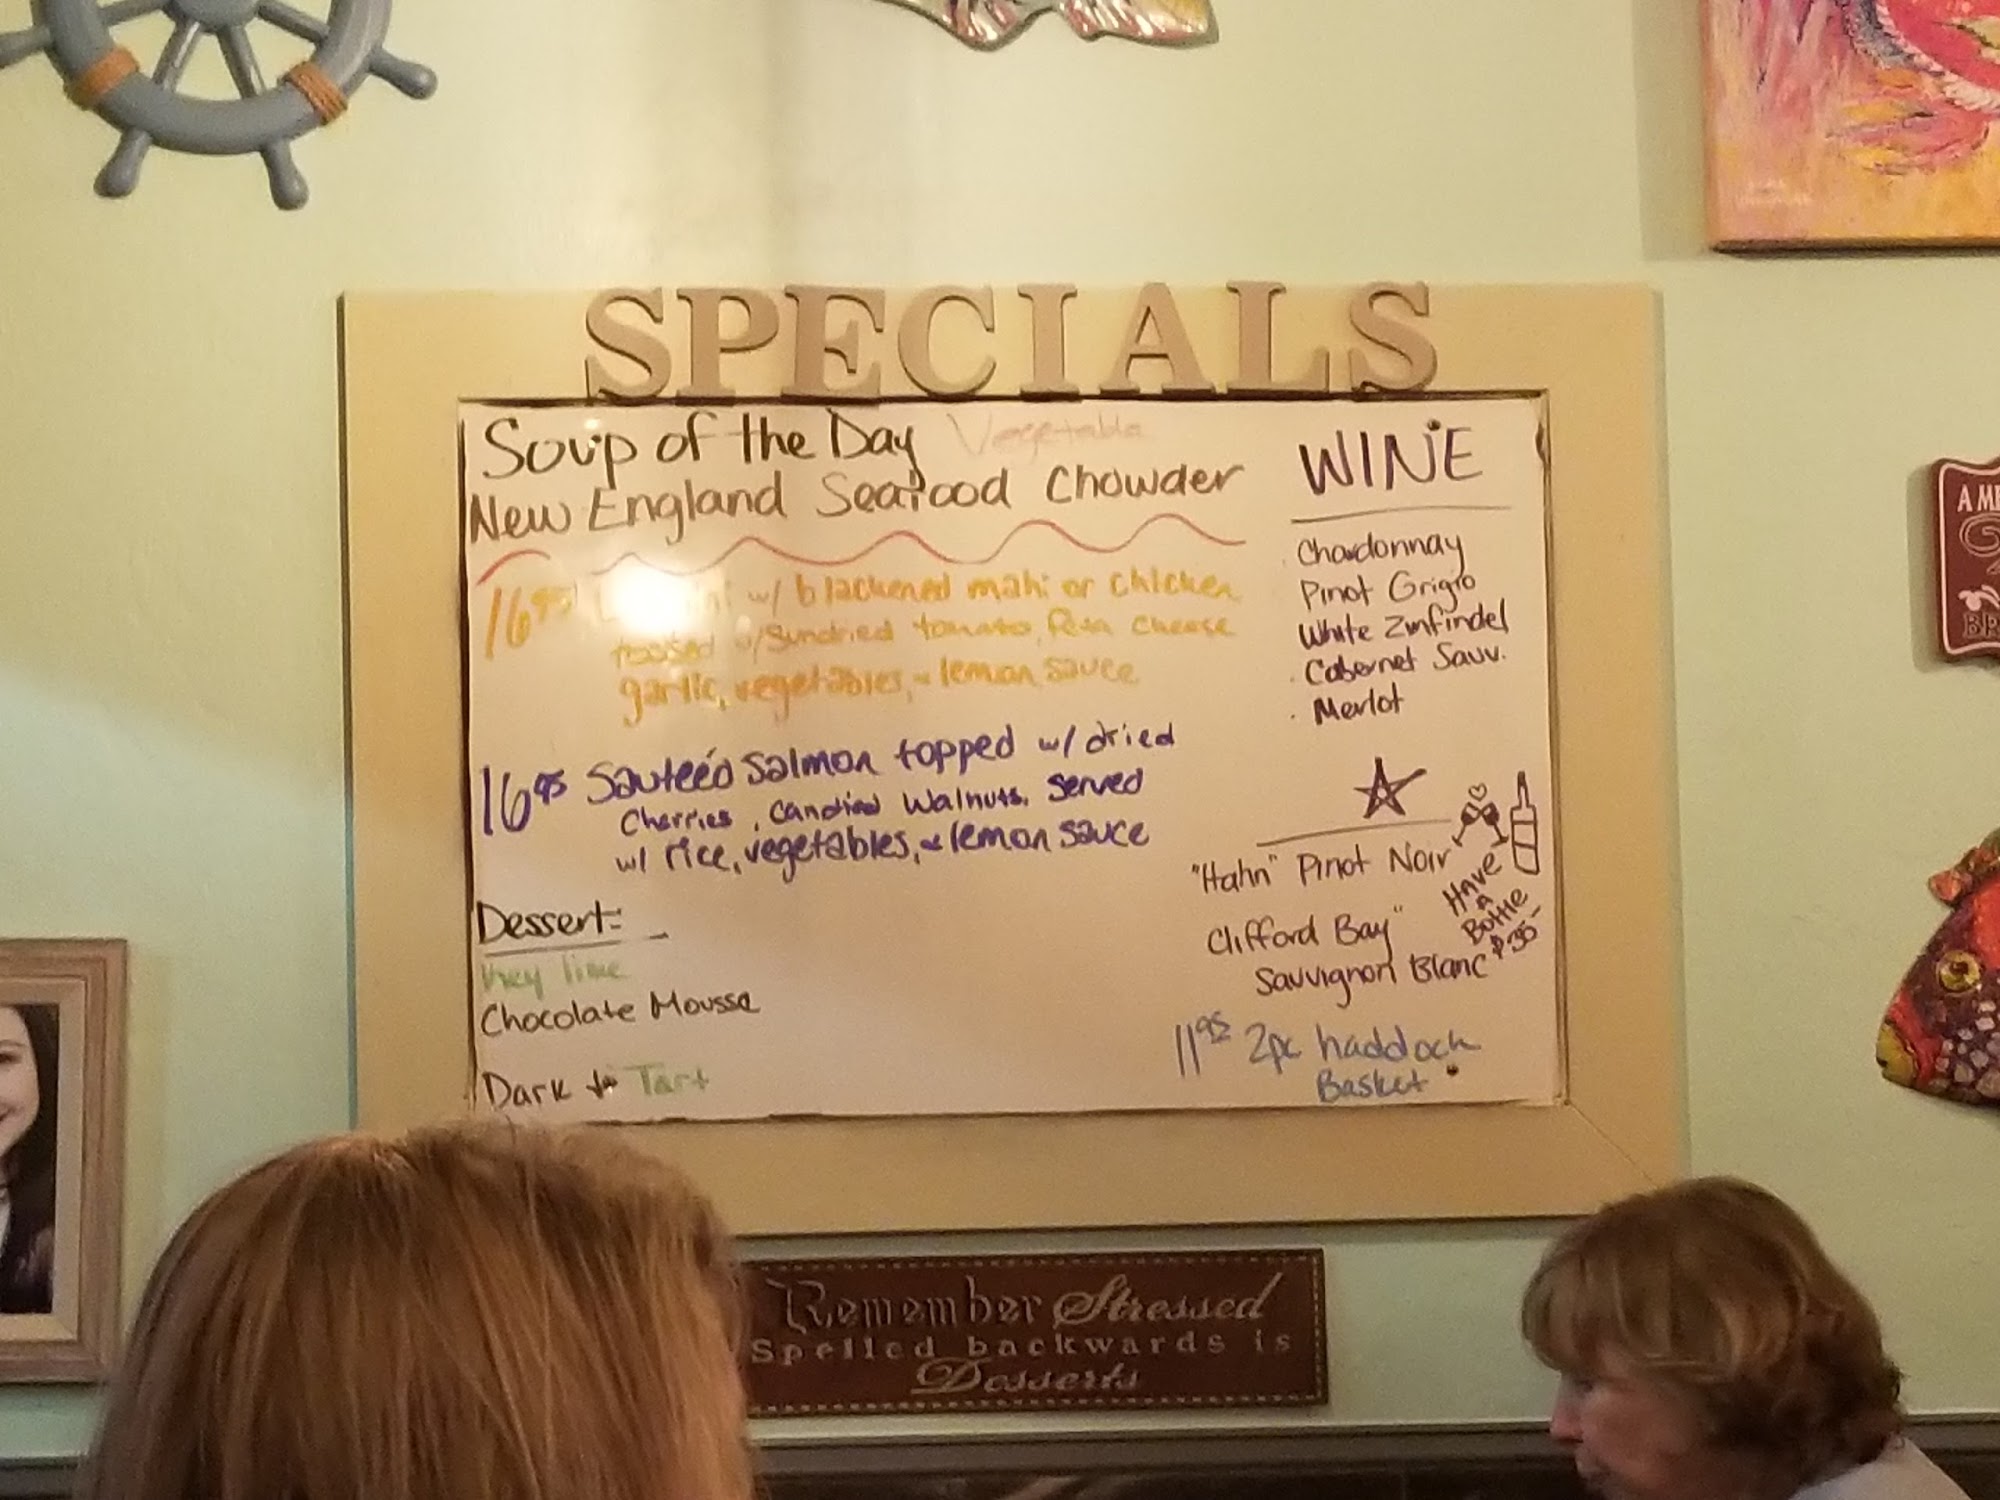 SPECIALS
Soup of the Day Vegetable
New England Seafood Chowder
16.95 w/ blackened mahi or chicken
tossed w/ Sundried tomato, feta cheese
garlic, vegetables, & lemon sauce
16.95 Sauteéd salmon topped w/ dried
Cherries, Candied Walnuts. Served
w/ rice, vegetables, & lemon sauce
Dessert:
Key lime
Chocolate Mousse
Dark & Tart
WINE
Chardonnay
Pinot Grigio
White Zinfindel
Cabernet Sauv.
Merlot
"Hahn" Pinot Noir
Clifford Bay"
Sauvignon Blanc
Have
A
Bottle
$35-
11.95 2pc haddock
Basket
Remember Stressed
Spelled backwards is
Desserts